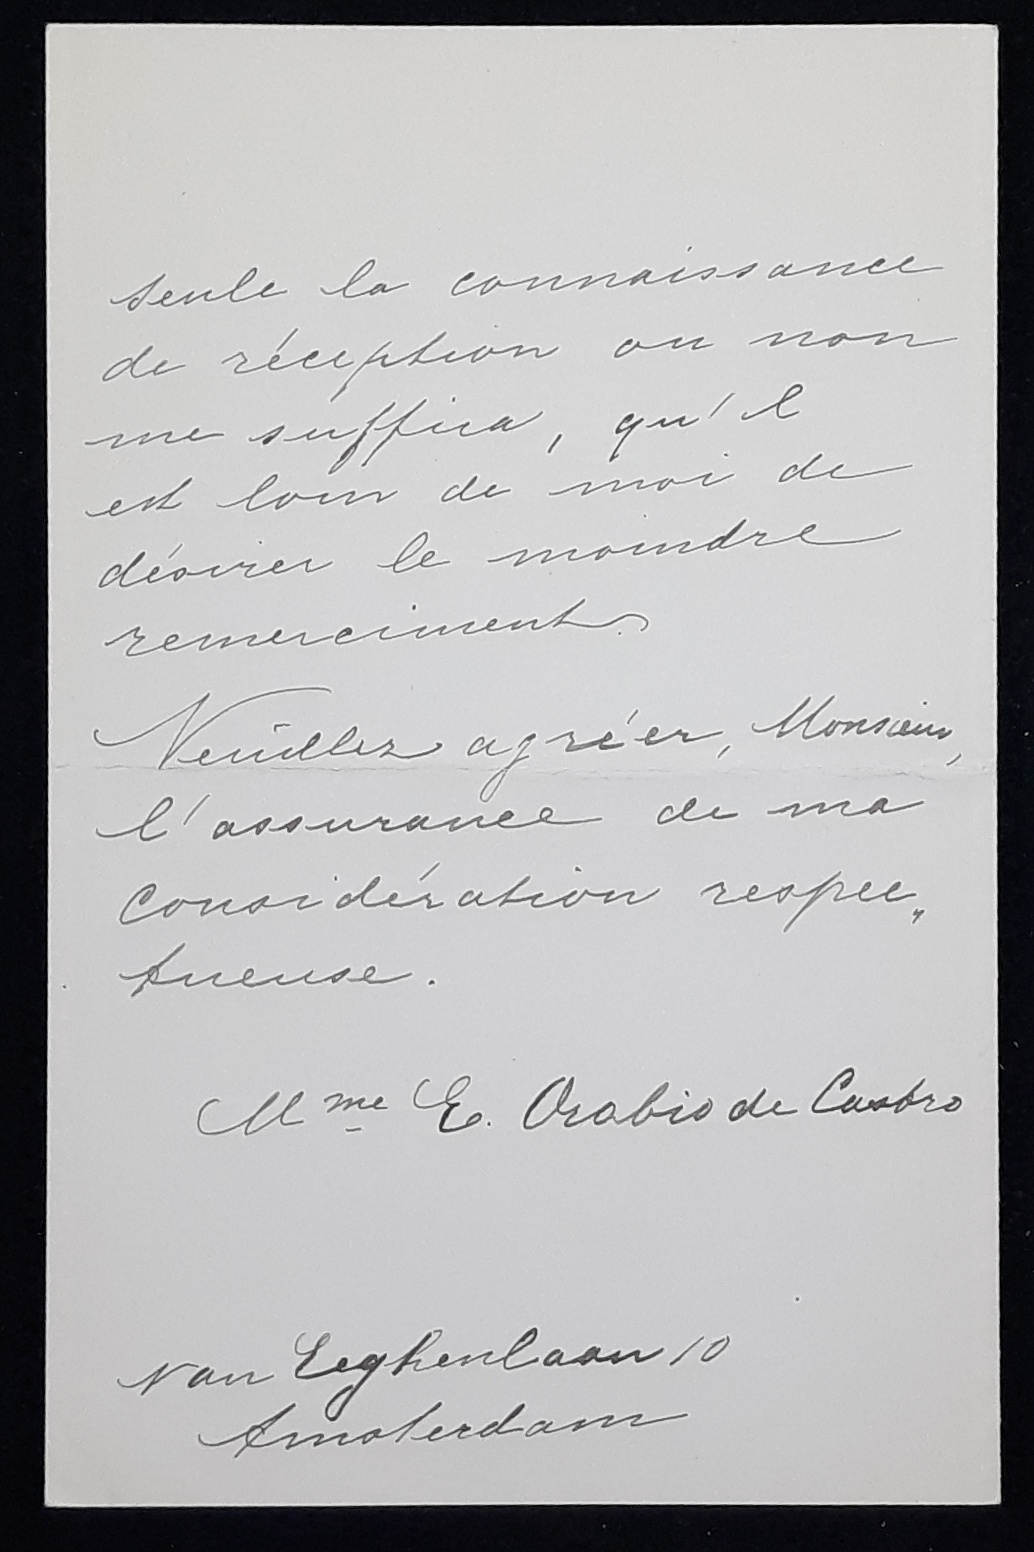 seule la connaissance
de réception ou non
me suffira, qu'il
est loin de moi de
désirer le moindre
remerciment.
Veuillez agréer, Monsieur,
l'assurance de ma
considération respec„
tueuse.
Mme E. Orobio de Castro
van Eeghenlaan 10
Amsterdam